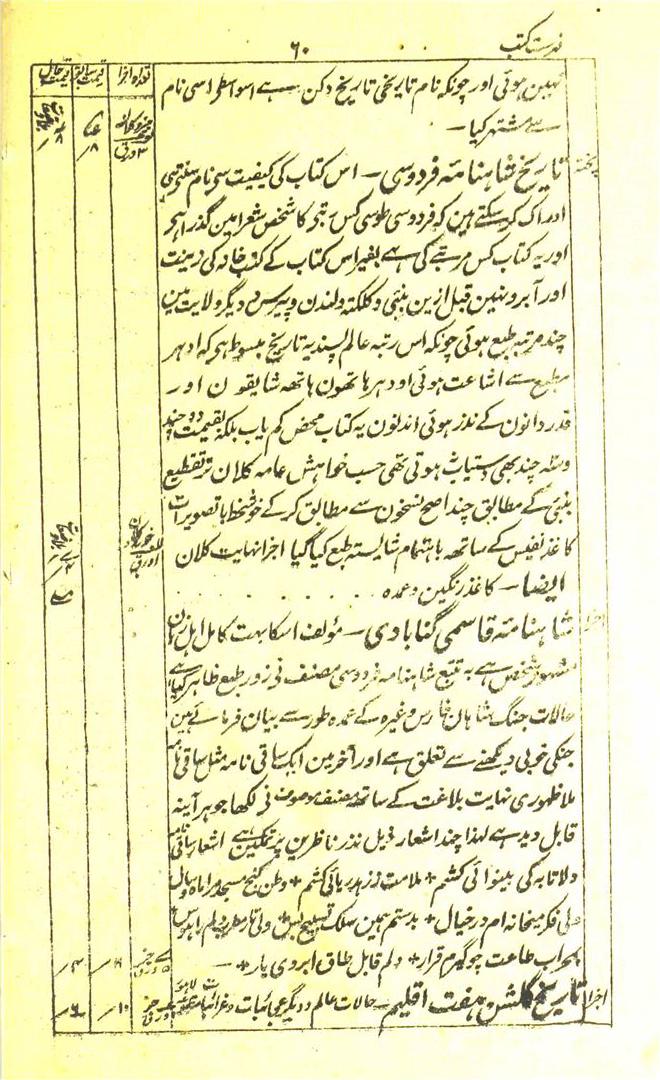 فہرست کتب
۶۰
تعداد اجزا
قیمت سابق
قیمت حال
نہین ہوئی اور چونکہ نام تاریخی تاریخ دکن ہے اسواسطے اسی نام
سے مشتہر کیا۔
تاریخ شاہنامہ فردوسی۔ اس کتاب کی کیفیت سے نام سنتے ہی
ادراک کر سکتے ہین کہ فردوسی طوسی کس رتبہ کا شخص شعرا مین گذرا ہے
اور یہ کتاب کس مرتبے کی ہے بغیر اس کتاب کے کتب خانہ کی زینت
اور آبرو نہین قبل ازین بمبئی و کلکتہ و لندن و پیرس و دیگر ولایت مین
چند مرتبہ طبع ہوئی چونکہ اس رتبہ عالم پسند یہ تاریخ مبسوط ہے کہ ادہر
مطبع سے اشاعت ہوئی اودہر ہاتھون ہاتھ شایقون اور
قدر دانون کے نذر ہوئی اندنون یہ کتاب محض کم یاب بلکہ بقیمت دو چند
و سہ چند بھی دستیاب نہوتی تھی حسب خواہش عامہ کلان تر تقطیع
بمبئی کے مطابق چند اصح نسخون سے مطابق کرکے خوشخط با تصویرات
کاغذ نفیس کے ساتھ باہتمام شایستہ طبع کیا گیا اجزا نہایت کلان
ایضا۔ کاغذ رنگین و عمدہ
شاہنامہ قاسمی گنابادی۔ مؤلف اسکا بہت کامل اہل زبان
مشہور شخص ہے بہ تتبع شاہنامہ فردوسی مصنف نے زور طبع ظاہر کیا ہے
حالات جنگ شاہان فارس وغیرہ کے عمدہ طور سے بیان فرمائے ہین
جنکی خوبی دیکھنے سے تعلق ہے اور آخر مین ایک ساقی نامہ مثل ساقی نامہ
ملا ظہوری نہایت بلاغت کے ساتھ مصنف موصوف نے لکھا جو ہر آینہ
قابل دید ہے لہذا چند اشعار ذیل نذر ناظرین پر تمکین ہے اشعار ساقی نامہ
دلا تا بہ کی بینوائی کشم + ملامت ز زہد ریائی کشم + وطن کنج مسجد مرا ماہ و سال
ولی فکر میخانہ ام در خیال + بدستم ہمین سلک تسبیح بس + ولی تار مطرب دلم را ہوس
بمحراب طاعت چو گیرم قرار + دلم قابل طاق ابروی یار + —
اجزا تاریخ گلشن ہفت اقلیم۔ حالات عالم و دیگر عجائبات و غرائبات